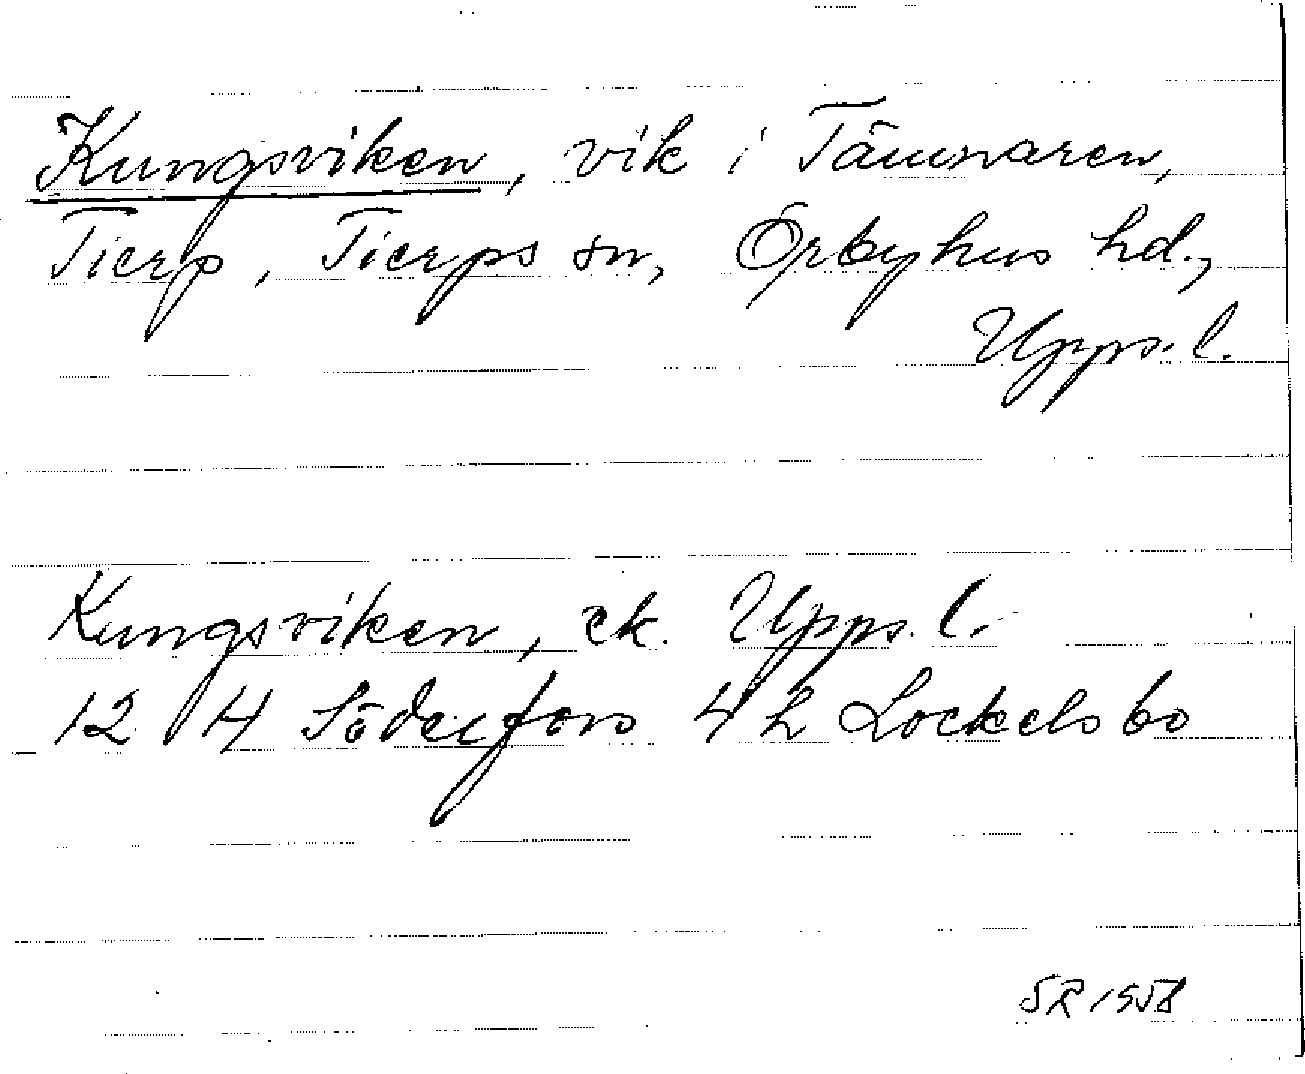 Kungsviken, vik i Tämnaren,
Tierp, Tierps sn, Örbyhus hd.,
Upps. l.
Kungsviken, ek. Upps. l.
12 H Söderfors 4 h Lockelsbo
SR 1958